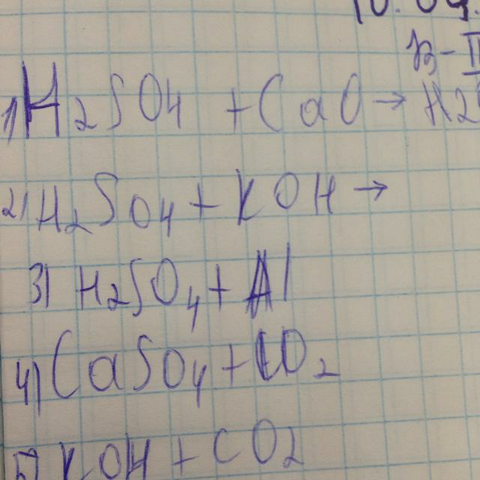 10.04.
В-II
1) H2SO4 + CaO → H2
2) H2SO4 + KOH →
3) H2SO4 + Al
4) CaSO4 + CO2
5) KOH + CO2